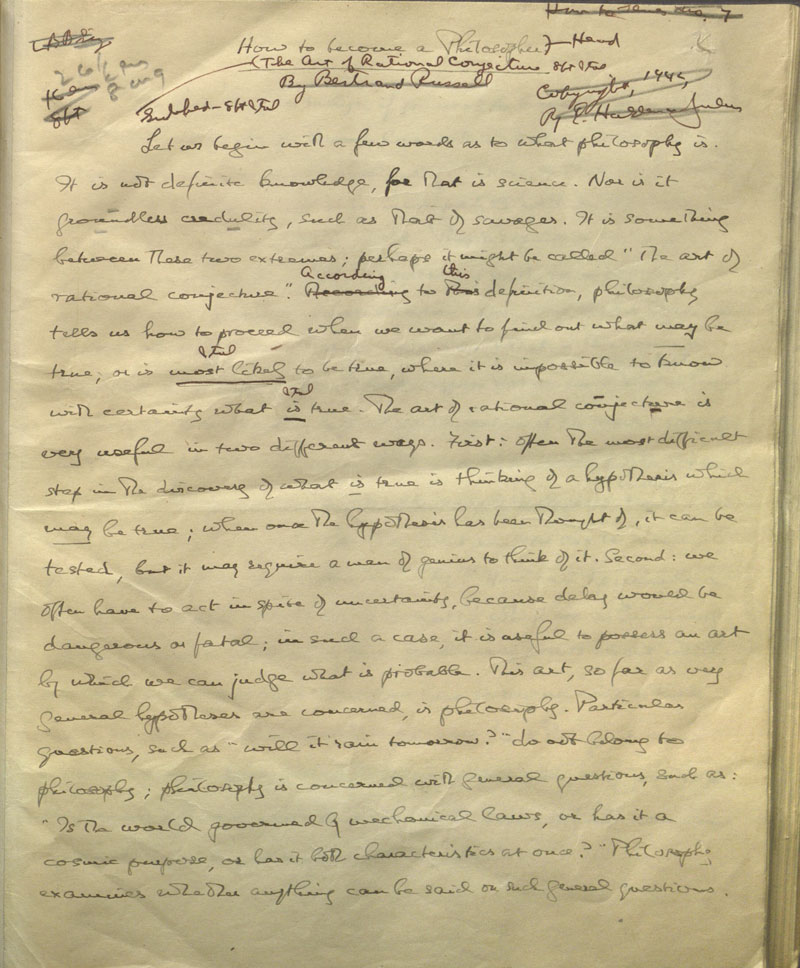 How to become a Philosopher Head
(The Art of Rational Conjecture 8pt Ital
By Bertrand Russell
Copyright, 1942,
By E.
8pt
Let us begin with a few words as to what philosophy is.
It is not definite knowledge, for that is science. Nor is it
groundless credulity, such as that of savages. It is something
between these two extremes; perhaps it might be called "The art of
rational conjecture". According to this definition, philosophy
tells us how to proceed when we want to find out what may be
true, or is most likely to be true, where it is impossible to know
with certainty what is true. The art of rational conjecture is
very useful in two different ways. First: often the most difficult
step in the discovery of what is true is thinking of a hypothesis which
may be true; when once the hypothesis has been thought of, it can be
tested, but it may require a man of genius to think of it. Second: we
often have to act in spite of uncertainty, because delay would be
dangerous or fatal; in such a case, it is useful to possess an art
by which we can judge what is probable. This art, so far as very
general hypotheses are concerned, is philosophy. Particular
questions, such as "will it rain tomorrow?" do not belong to
philosophy; philosophy is concerned with general questions, such as:
"Is the world governed by mechanical laws, or has it a
cosmic purpose, or has it both characteristics at once?" Philosophy
examines whether anything can be said on such general questions.